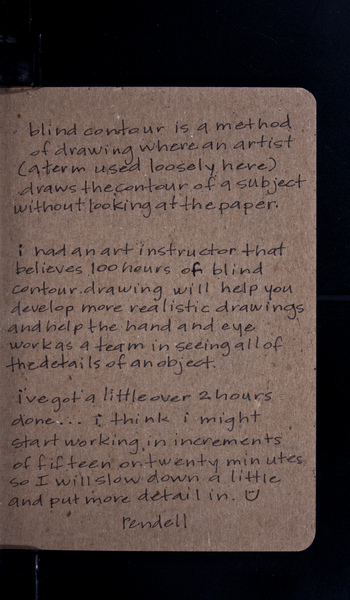 blind contour is a method
of drawing where an artist
(a term used loosely here)
draws the contour of a subject
without looking at the paper.
i had an art instructor that
believes 100 hours of blind
contour drawing will help you
develop more realistic drawings
and help the hand and eye
work as a team in seeing all of
the details of an object.
i've got a little over 2 hours
done... i think i might
start working in increments
of fifteen or twenty minutes
so I will slow down a little
and put more detail in.
rendell